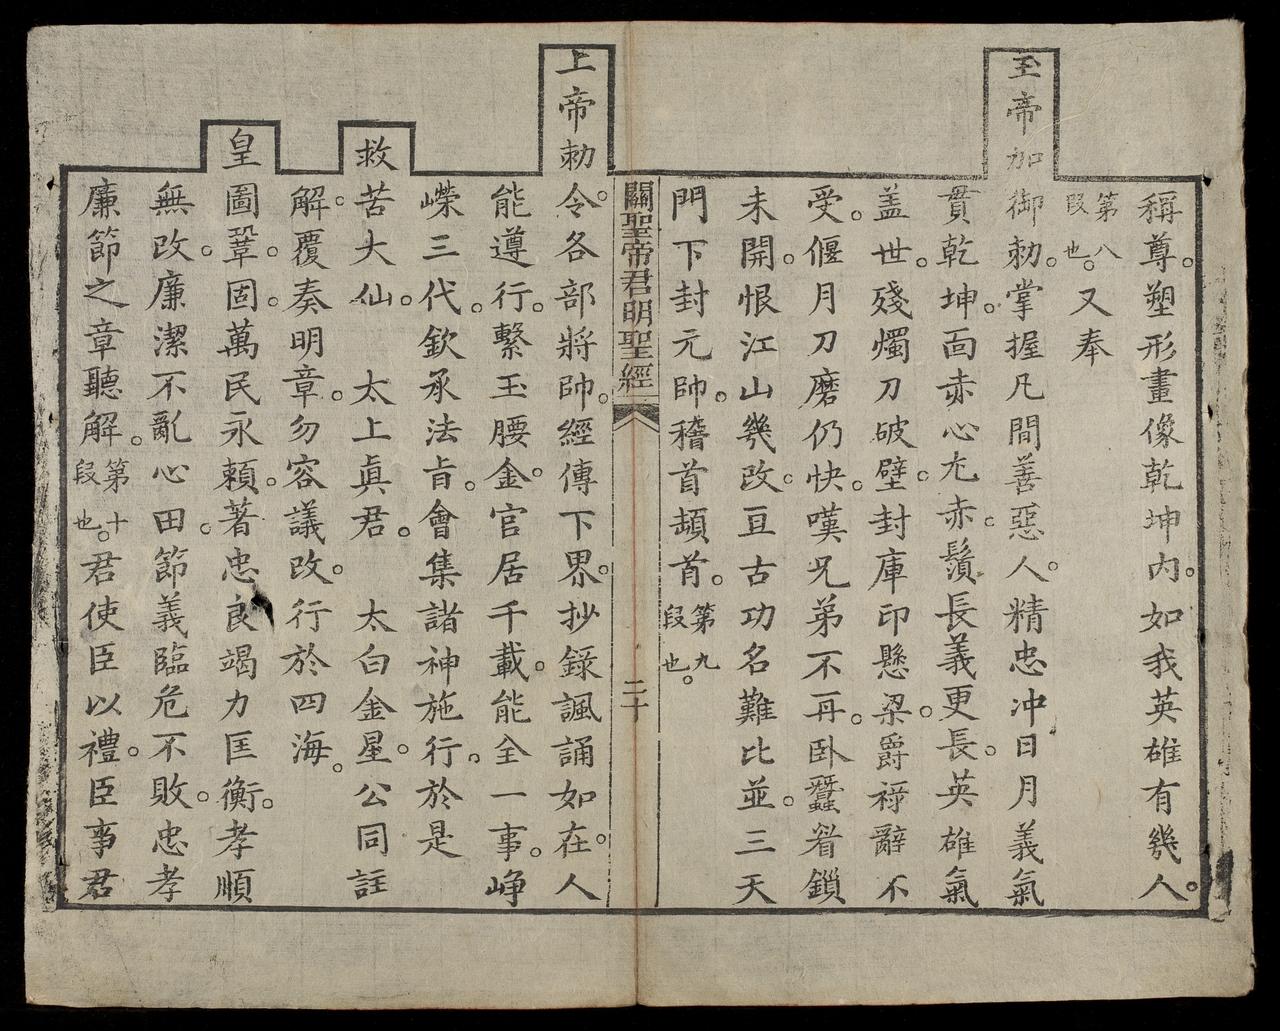 稱尊。塑形畫像乾坤內。如我英雄有幾人。
第八段也。又奉
玉帝加御勅。掌握凡間善惡人。精忠冲日月義氣
貫乾坤。面赤心尤赤。鬚長義更長。英雄氣
盖世。殘燭刀破壁。封庫印懸梁。爵祿辭不
受。偃月刀磨仍快。嘆兄弟不再。卧蠶眉鎖
未開。恨江山幾改。亙古功名難比並。三天
門下封元帥。稽首頓首。第九段也。
關聖帝君明聖經
二十
上帝勅令。各部將帥。經傳下界。抄錄諷誦如在。人
能遵行。繫玉腰金。官居千載。能全一事。崢
嶸三代。欽承法旨。會集諸神施行。於是
救苦大仙。太上眞君。太白金星。公同註
解。覆奏明章。勿容議改。行於四海。
皇圖鞏。固。萬民永賴。著忠良竭力匡衡。孝順
無改。廉潔不亂心田。節義臨危不敗。忠孝
廉節之章聽解。第十段也。君使臣以禮。臣事君